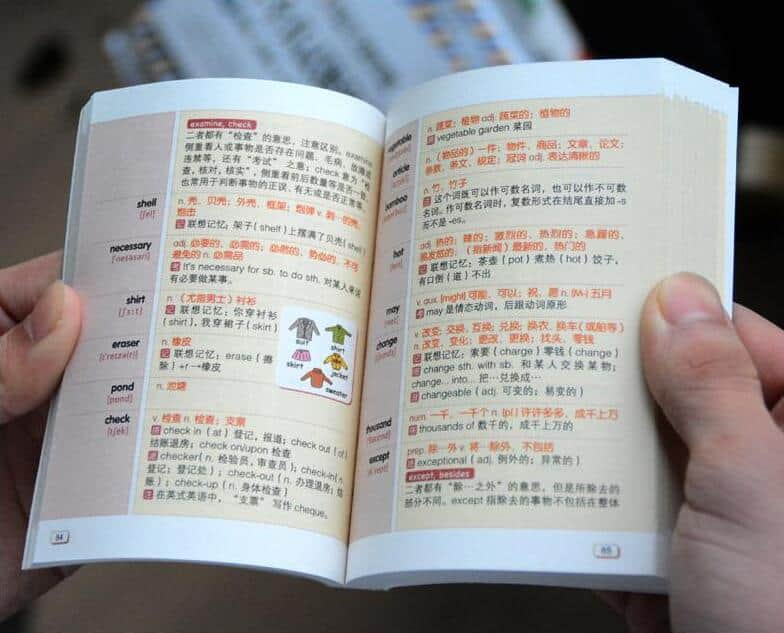 examine, check
二者都有“检查”的意思，注意区别。examine
侧重看人或事物是否存在问题、毛病、故障或
违禁等，还有“考试”之意；check 意为“检
查，核对，核实”，侧重看前后数量等是否一致，
也常用于判断事物的正误、有无或是否正常等。
shell
[ʃel]
n. 壳、贝壳；外壳、框架；炮弹 v. 剥…的壳、
炮击
记 联想记忆：架子(shelf)上摆满了贝壳(shell)
necessary
['nesəsəri]
adj. 必要的、必需的；必然的、势必的、不可
避免的 n. 必需品
考 It's necessary for sb. to do sth. 对某人来说
有必要做某事。
shirt
[ʃɜːt]
n.（尤指男士）衬衫
记 联想记忆：你穿衬衫
(shirt)，我穿裙子(skirt)
suit
shirt
skirt
jacket
sweater
eraser
n. 橡皮
记 联想记忆：erase（擦
除）+r→橡皮
pond
[pɒnd]
n. 池塘
check
[tʃek]
v. 检查 n. 检查；支票
check in (at) 登记，报道；check out (of)
结账退房；check on/upon 检查
checker(n. 检验员，审查员)；check-in(n.
登记；登记处)；check-out (n. 办理退房；结
账)；check-up (n. 身体检查)
注 在英式英语中，“支票”写作 cheque。
84
vegetable
n. 蔬菜；植物 adj. 蔬菜的；植物的
vegetable garden 菜园
article
n.（物品的）一件；物件、商品；文章、论文；
条款、条文、规定；冠词 adj. 表达清晰的
bamboo
n. 竹，竹子
这个词既可以作可数名词，也可以作不可数
名词。作可数名词时，复数形式在结尾直接加 -s
而不是 -es。
hot
adj. 热的；辣的；激烈的、热烈的；急躁的、
易发怒的；（指新闻）最新的、热门的
记 联想记忆：茶壶（pot）煮热（hot）饺子，
有口倒（道）不出
may
v. aux. [might] 可能、可以；祝、愿 n. [M-] 五月
考 may 是情态动词，后跟动词原形
change
v. 改变；交换、互换；兑换；换衣、换车（或船等）
n. 改变、变化；更改、更换；找头、零钱
记 联想记忆：索要（charge）零钱（change）
change sth. with sb. 和某人交换某物；
change... into... 把…兑换成…
changeable (adj. 可变的；易变的)
thousand
num. 一千，一千个 n. [pl.] 许许多多、成千上万
thousands of 数千的，成千上万的
except
prep. 除…外 v. 将…除外、不包括
exceptional (adj. 例外的；异常的)
except, besides
二者都有“除…之外”的意思，但是所除去的
部分不同。except 指除去的事物不包括在整体
85